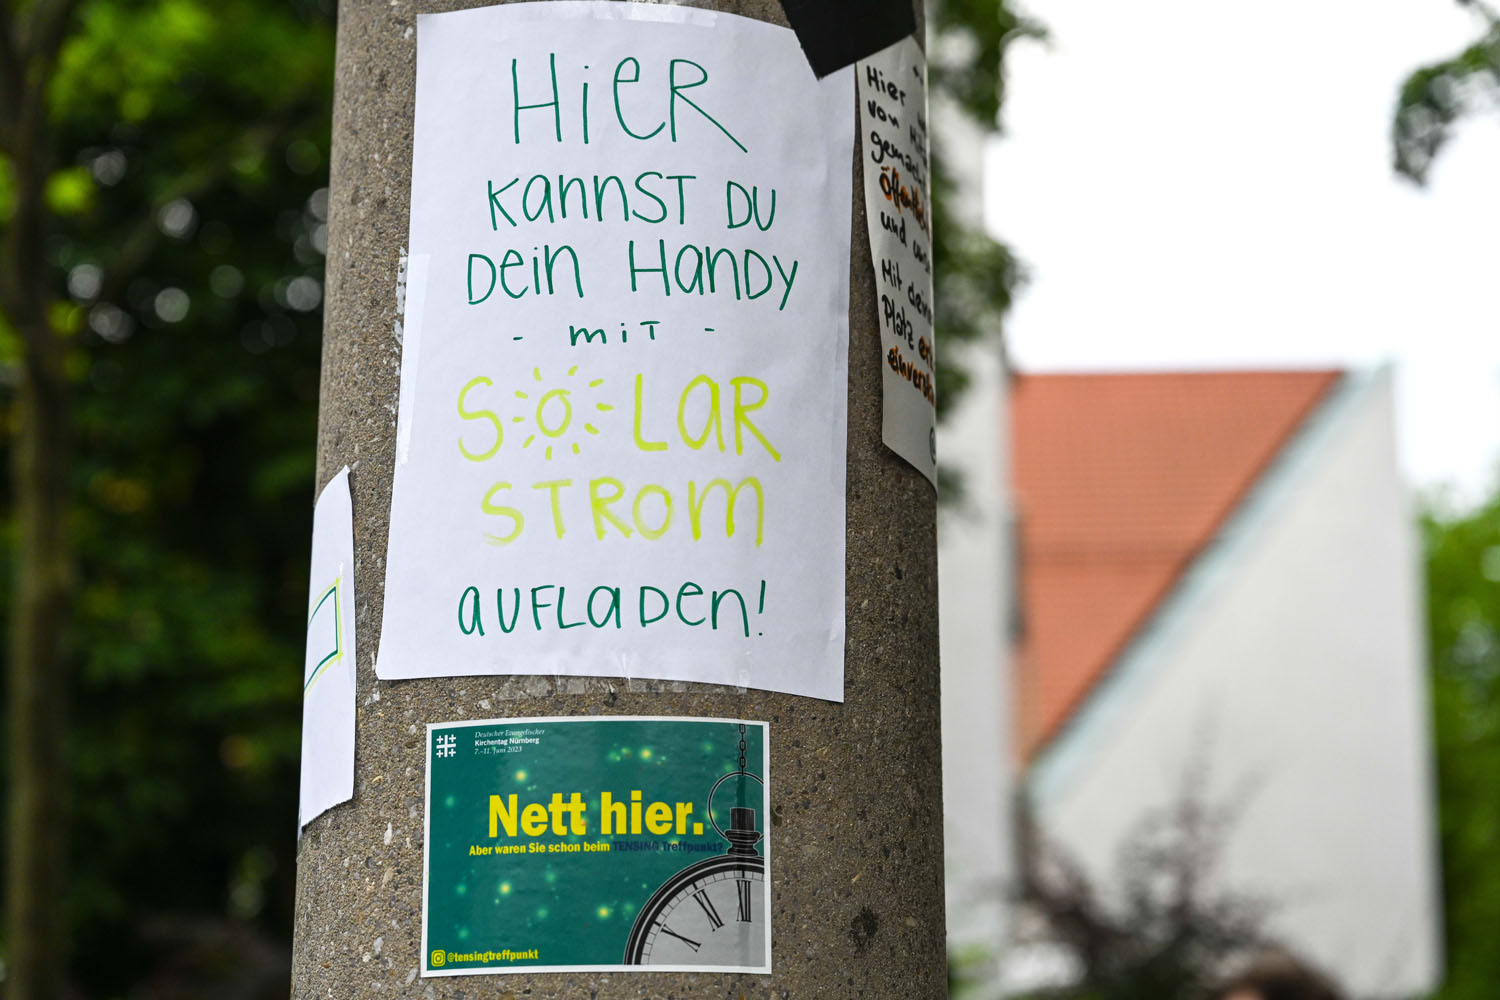 HieR
KannST DU
Dein HanDY
- miT -
SOLaR
STRom
aUFLaDen!
Hier
von
und
Platz
Deutscher Evangelischer
Kirchentag Nürnberg
7.–11. Juni 2023
Nett hier.
Aber waren Sie schon beim TENSING Treffpunkt?
@tensingtreffpunkt
X XI XII